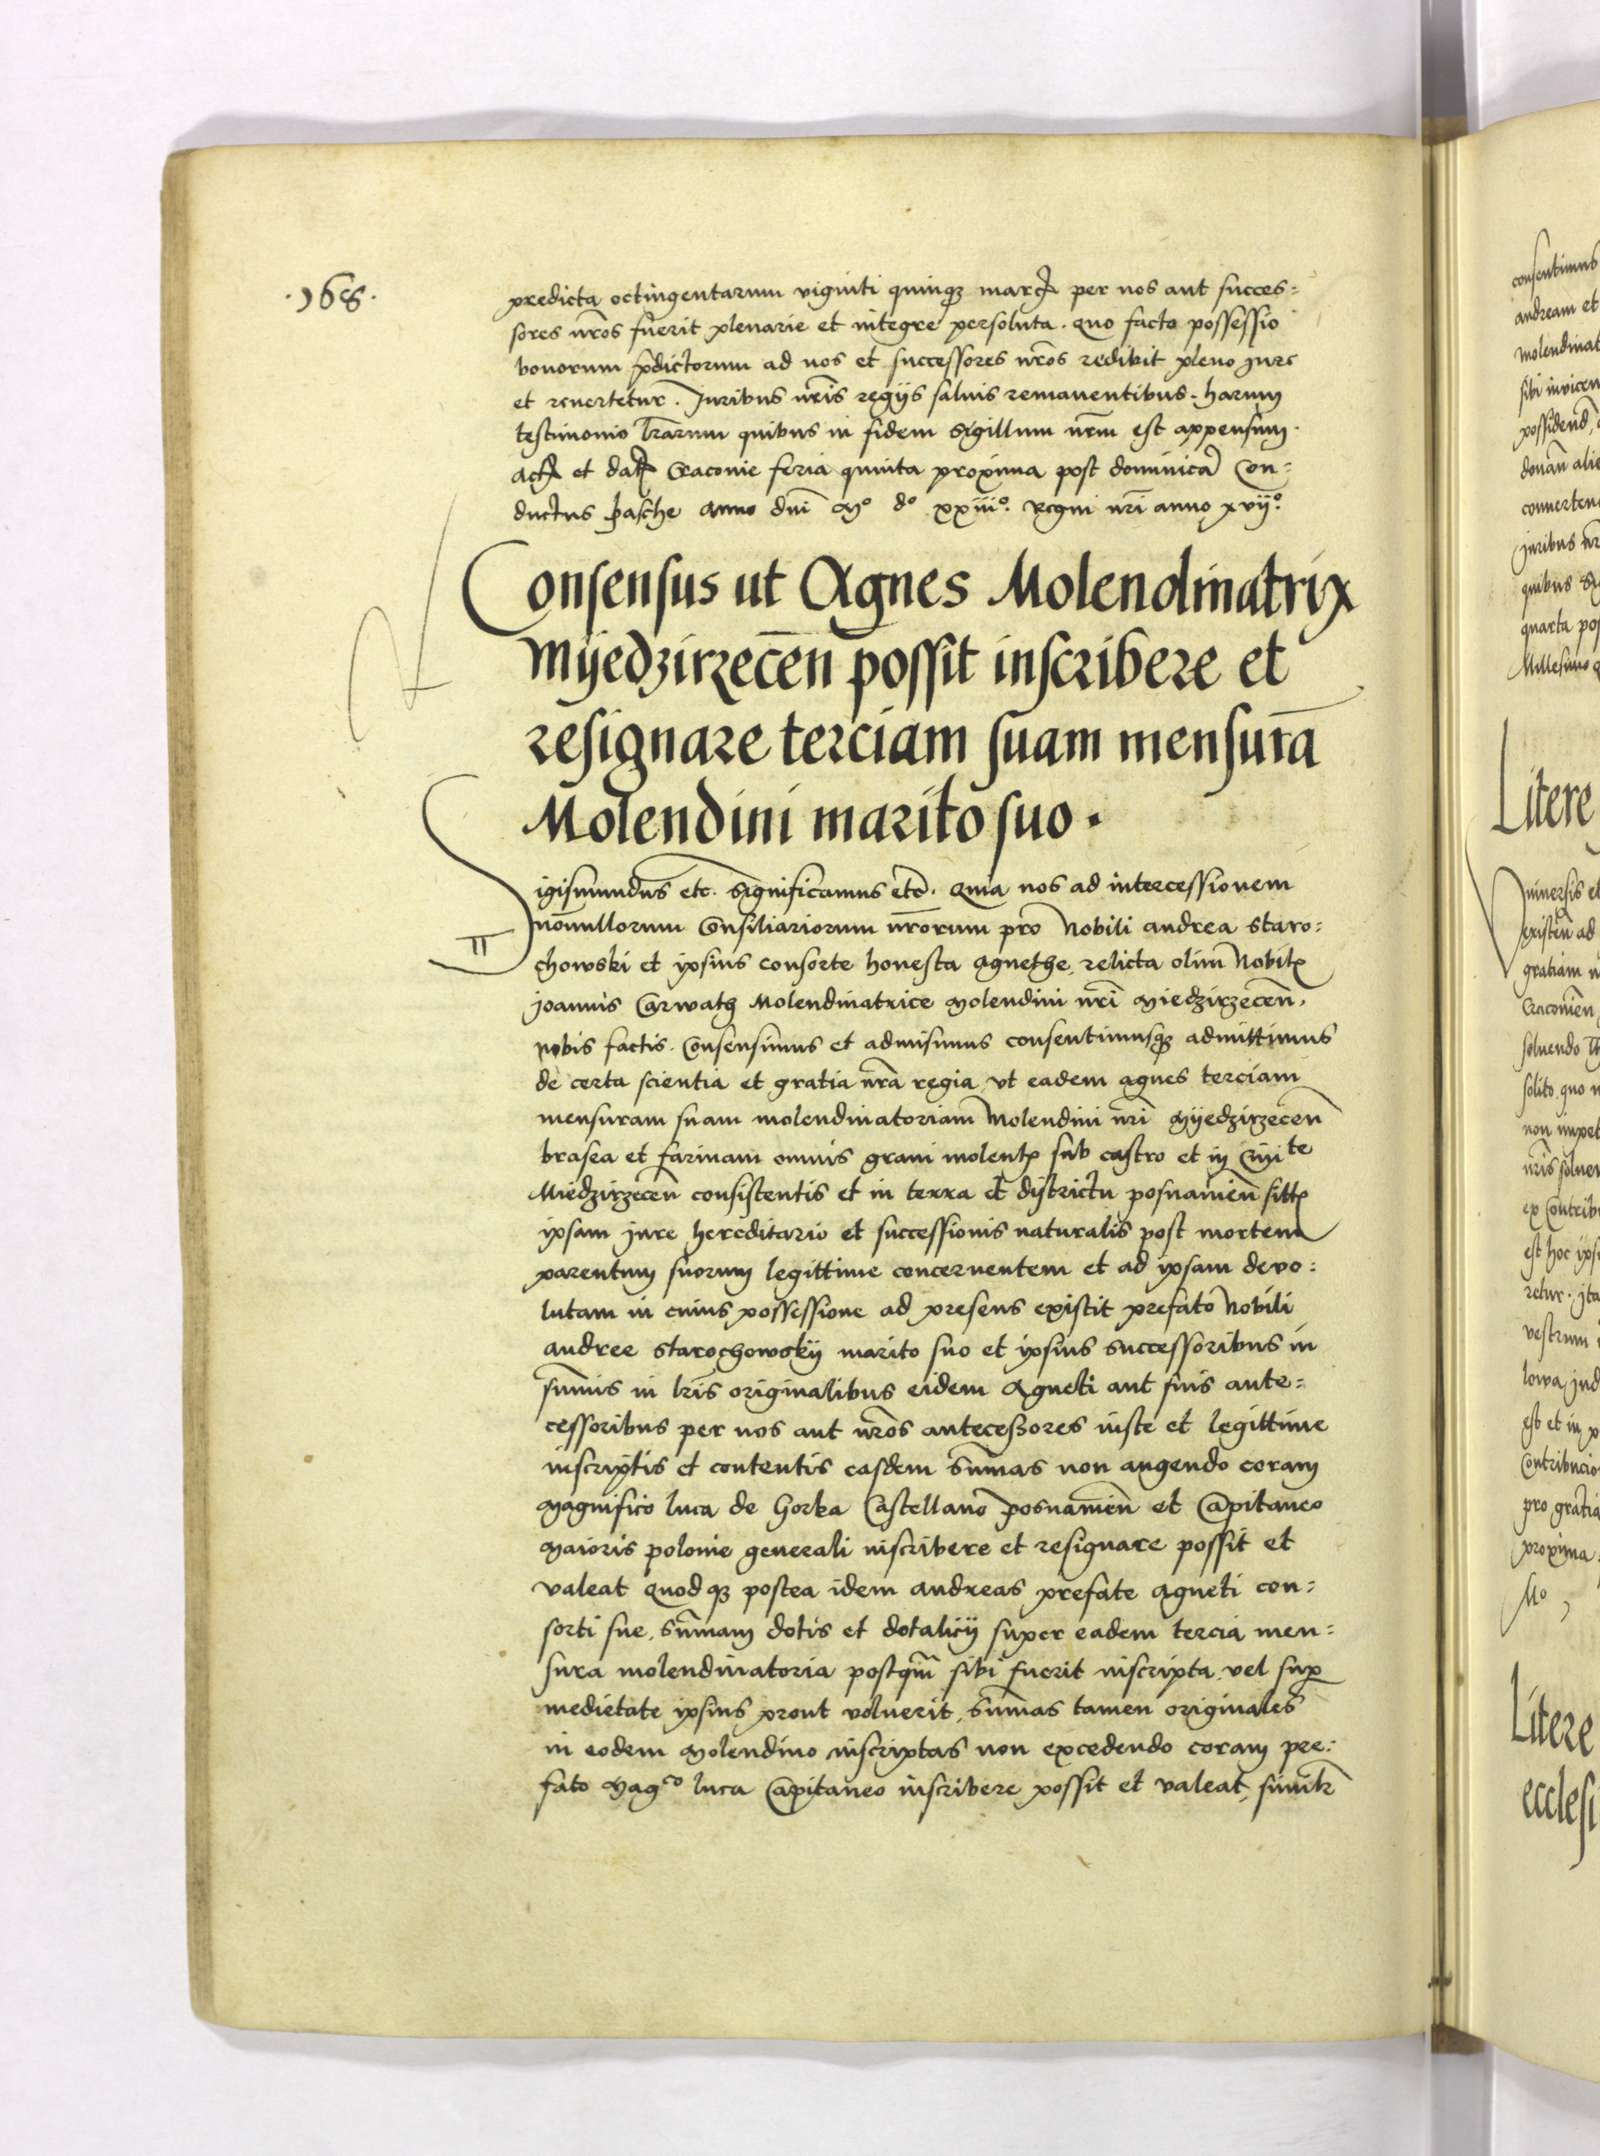 ·168·
predicta octingentarum viginti quinqꝫ marcꝝ per nos aut succes=
sores nr̄os fuerit plenarie et integre persoluta. quo facto possessio
bonorum p̄dictorum ad nos et successores nr̄os redibit pleno Jure
et reuertetur. Juribus nr̄is regijs saluis remanentibus. harum
testimonio lr̄arum quibus in fidem sigillum nr̄m est appensum.
Actꝝ et datꝝ Cracouie feria quinta proxima post dominicā Con=
ductus pasche Anno dn̄i Mº dº xxiiiº. Regni nr̄i anno xvijº.
Consensus ut Agnes Molendinatrix
Myedzirzecen̄ possit inscribere et
resignare terciam suam mensurā
Molendini marito suo.
Sigismundus etc. Significamus etc̄. Quia nos ad intercessionem
non̄nullorum Consiliariorum nr̄orum pro Nobili andrea Staro=
chowski et ipsius consorte honesta Agnethe, relicta olim Nobilꝭ
Joannis Carwath Molendinatrice Molendini nr̄i Miedzirzecen̄,
nobis factis. Consensimus et admisimus consentimusqꝫ admittimus
de certa scientia et gratia nr̄a regia vt eadem Agnes terciam
mensuram suam molendinatoriam Molendini nr̄i Myedzirzecen̄
brasea et farinam omnis grani molentꝭ sub castro et in Ciuite
Miedzirzecen̄ consistentis et in terra et districtu posnanien̄ sittꝭ
ipsam jure hereditario et successionis naturalis post mortem
parentum suorum legittime concernentem et ad ipsam devo=
lutam in cuius possessione ad presens existit prefato Nobili
Andree Starochowskij marito suo et ipsius successoribus in
sum̄is in lr̄is originalibus eidem Agneti aut suis ante=
cessoribus per nos aut nr̄os antecessores iuste et legittime
inscriptis et contentis easdem Sum̄as non augendo coram
Magnifico luca de Gorka Castellano posnanien̄ et Capitaneo
Maioris polonie generali inscribere et resignare possit et
valeat Quodqꝫ postea idem Andreas prefate Agneti con=
sorti sue, Sum̄am dotis et dotalicij super eadem tercia men=
sura molendinatoria postqm̄ sibi fuerit inscripta vel sup̱
medietate ipsius prout voluerit, Sum̄as tamen originales
in eodem Molendino inscriptas non excedendo coram pre=
fato Mag^co luca Capitaneo inscribere possit et valeat, similr̄